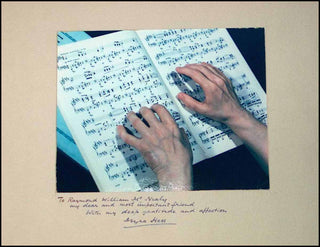 To Raymond William Mc Nealy
my dear and most important friend
With my deep gratitude and affection
Myra Hess